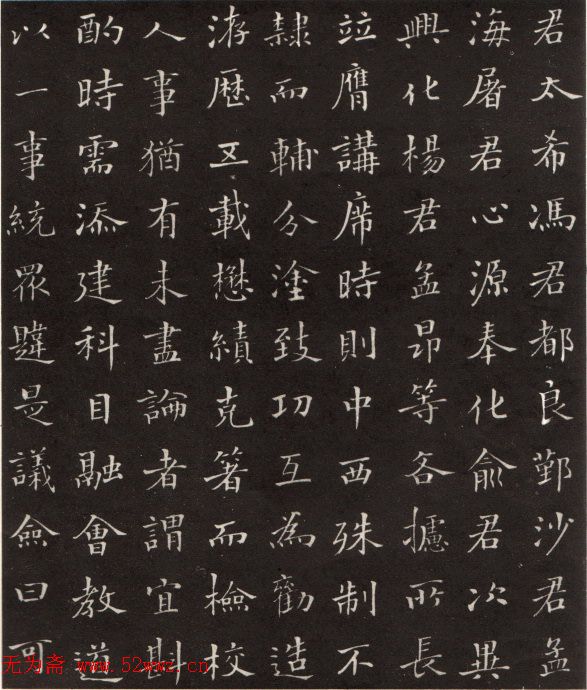 君太希馮君都良鄞沙君孟
海屠君心源奉化俞君次
興化楊君孟昂等各攄所長
竝膺講席時則中西殊制不
隸而輔分塗致功互為勸造
洊歷五載懋績克箸而檢校
人事猶有未盡論者謂宜斟
酌時需添建科目融會教道
以一事統眾韙是議僉曰可
无为斋 www.52wwz.cn